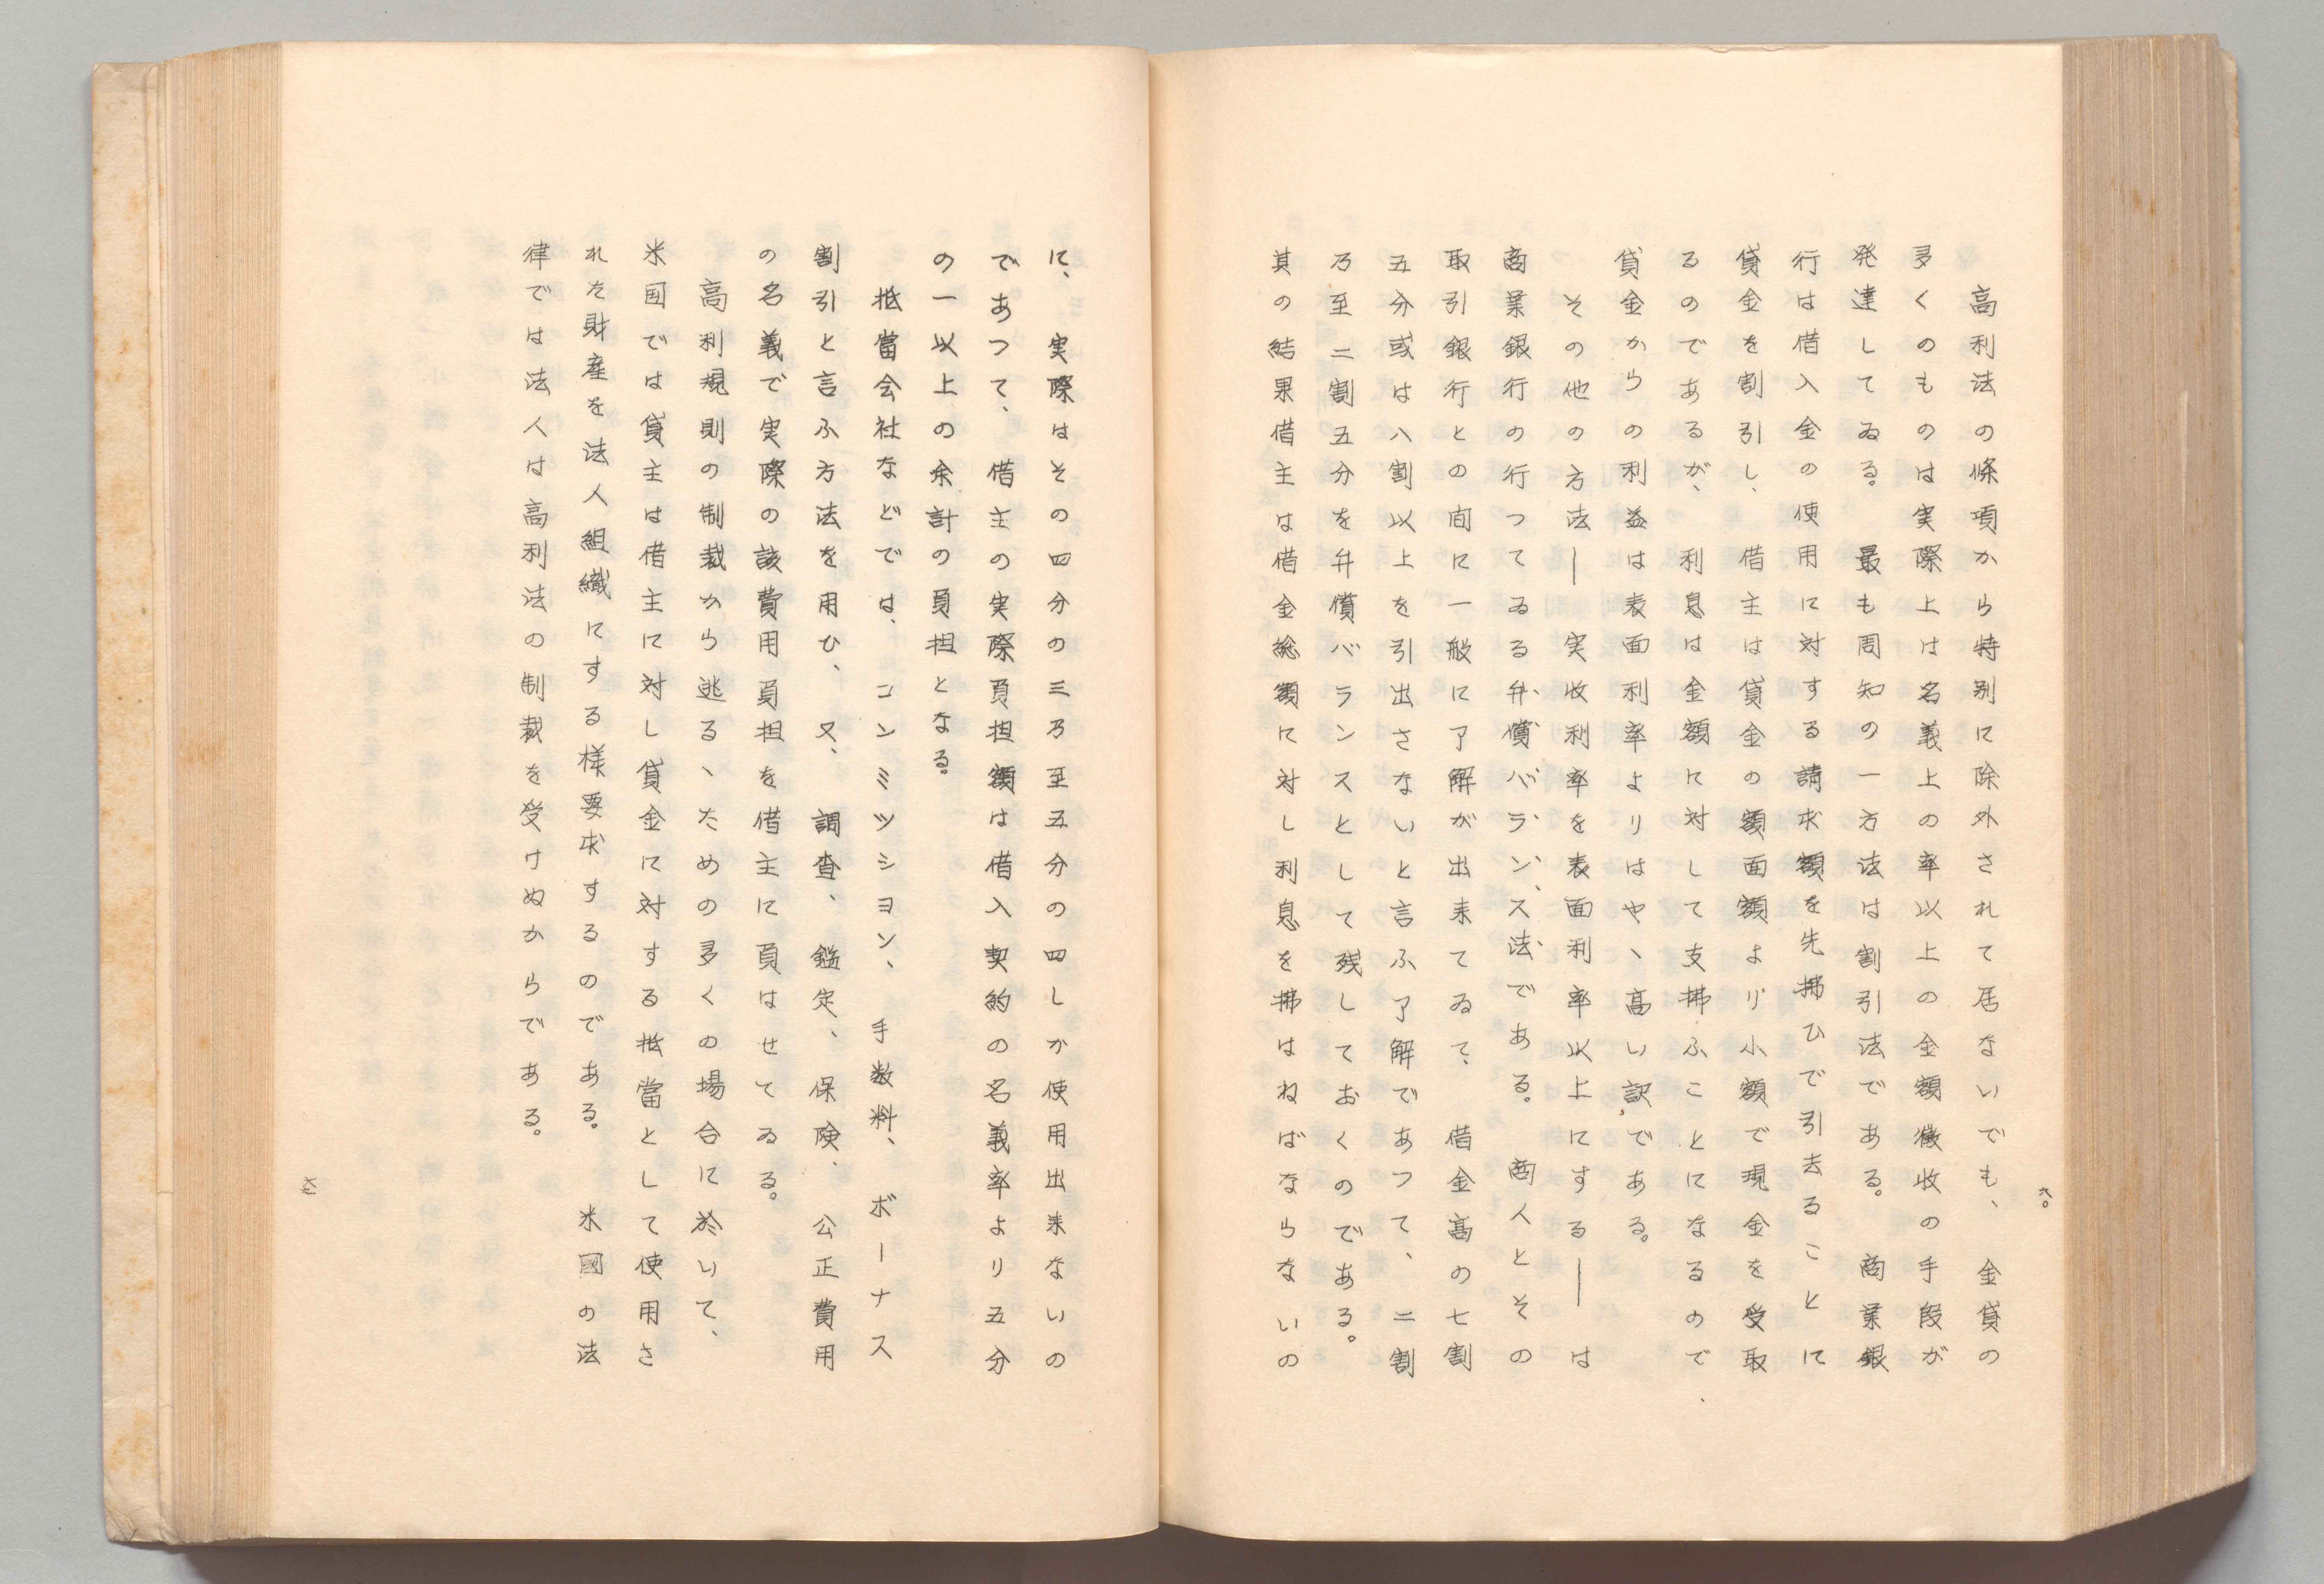 六〇
高利法の條項から特別に除外されて居ないでも、金貸の
多くのものは実際上は名義上の率以上の金額徴収の手段が
発達してゐる。最も周知の一方法は割引法である。商業銀
行は借入金の使用に対する請求額を先拂ひで引去ることに
貸金を割引し、借主は貸金の額面額より小額で現金を受取
るのであるが、利息は金額に対して支拂ふことになるので
貸金からの利益は表面利率よりはやヽ高い訳である。
その他の方法―実收利率を表面利率以上にする―は
商業銀行の行つてゐる弁償バランス法である。商人とその
取引銀行との間に一般に了解が出来てゐて、借金高の七割
五分或は八割以上を引出さないと言ふ了解であつて、二割
乃至二割五分を弁償バランスとして残しておくのである。
其の結果借主は借金総額に対し利息を拂はねばならないの
に、実際はその四分の三乃至五分の四しか使用出来ないの
であつて、借主の実際負担額は借入契約の名義率より五分
の一以上の余計の負担となる。
抵當会社などでは、コンミツシヨン、手数料、ボーナス
割引と言ふ方法を用ひ、又、調査、鑑定、保険、公正費用
の名義で実際の該費用負担を借主に負はせてゐる。
高利規則の制裁から逃るヽための多くの場合に於いて、
米国では貸主は借主に対し貸金に対する抵當として使用さ
れた財産を法人組織にする様要求するのである。米國の法
律では法人は高利法の制裁を受けぬからである。
六一